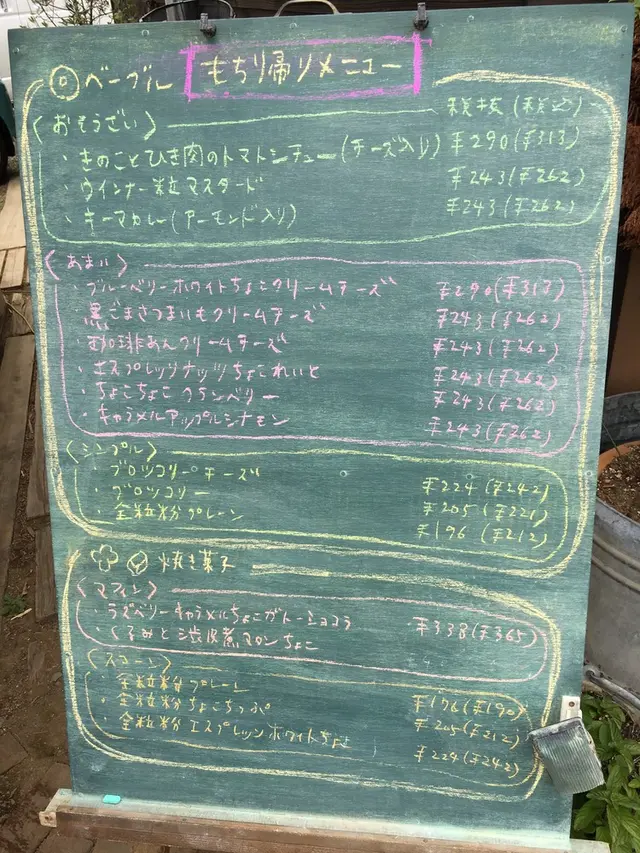 もちり帰りメニュー
◎ベーグル
税抜(税込)
〈おそうざい〉
・きのことひき肉のトマトシチュー(チーズ入り) ¥290(¥313)
・ウインナー粒マスタード ¥243(¥262)
・キーマカレー(アーモンド入り) ¥243(¥262)
〈あまい〉
・ブルーベリーホワイトちょこクリームチーズ ¥290(¥313)
黒ごまさつまいもクリームチーズ ¥243(¥262)
・珈琲あんクリームチーズ ¥243(¥262)
・エスプレッソナッツちょこれいと ¥243(¥262)
・ちょこちょこクランベリー ¥243(¥262)
・キャラメルアップルシナモン ¥243(¥262)
〈シンプル〉
・ブロッコリーチーズ ¥224(¥242)
・ブロッコリー ¥205(¥221)
・全粒粉プレーン ¥196(¥212)
焼き菓子
〈マフィン〉
・ラズベリーキャラメルちょこガトーショコラ ¥338(¥365)
・くるみと渋皮煮マロンちょこ
〈スコーン〉
・全粒粉プレーン ¥176(¥190)
・全粒粉ちょこちっぷ ¥205(¥212)
・全粒粉エスプレッソホワイトちょこ ¥224(¥242)